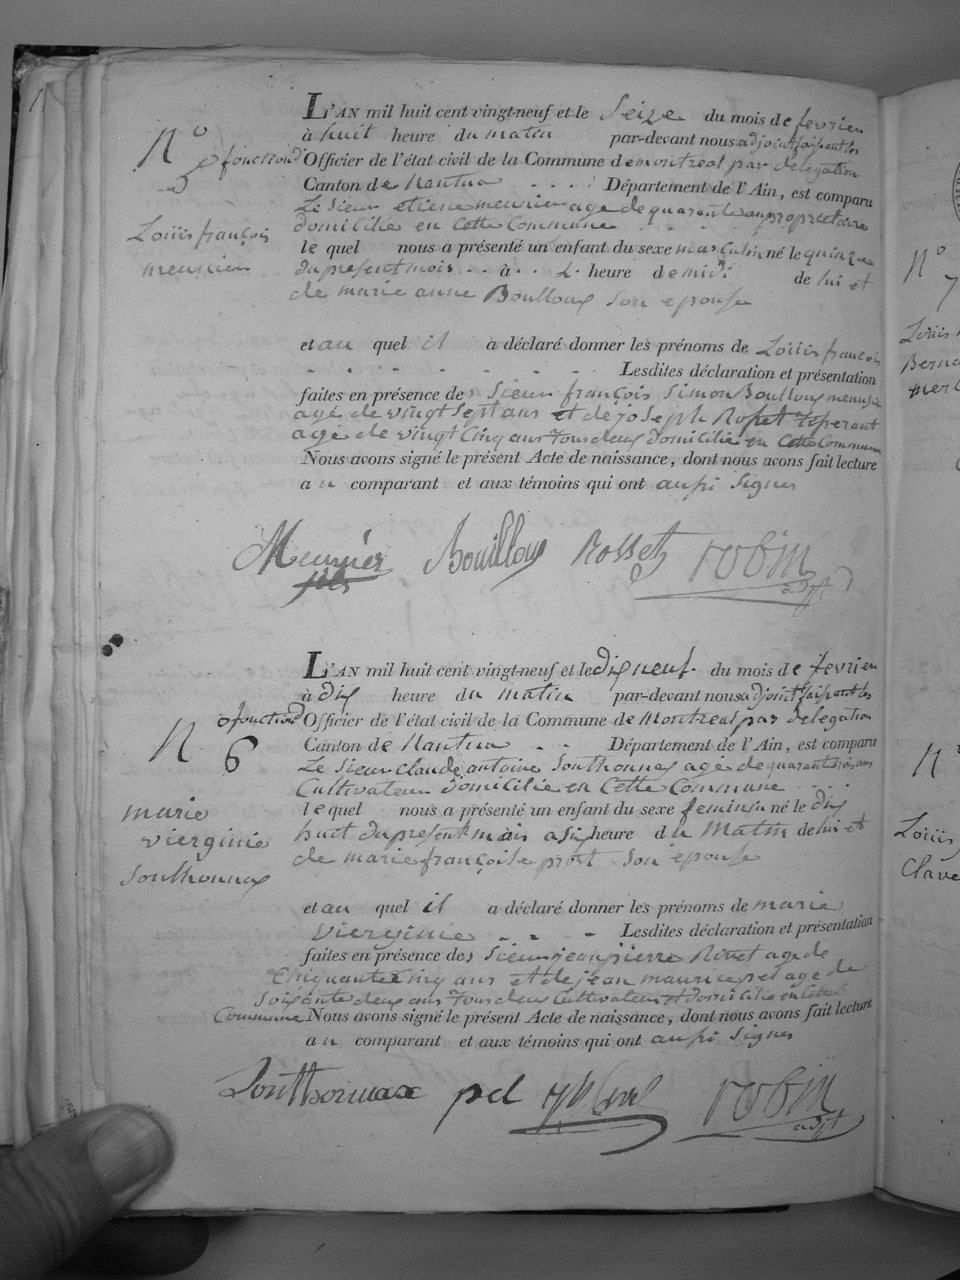 L'AN mil huit cent vingt-neuf et le Seize du mois de fevrier
à huit heure du matin par-devant nous adjoint faisant les
N° 5 fonctions d'Officier de l'état civil de la Commune de montreal par delegation
Canton de Nantua Département de l'Ain, est comparu
Le Sieur etiene meunier age de quarante ans proprietaire
Louis françois domicilié en Cette Commune
le quel nous a présenté un enfant du sexe masculin né le quinze
meunier du present mois à heure de midi de lui et
de marie anne Boulloux son epouse
et au quel il a déclaré donner les prénoms de Louis françois
Lesdites déclaration et présentation
faites en présence de Sieur françois Simon Boulloux menusier
agé de vingt Sept ans et de joseph Rosset
agé de vingt Cinq ans tous deux domicilié en Cette Commune
Nous avons signé le présent Acte de naissance, dont nous avons fait lecture
au comparant et aux témoins qui ont aussi Signes
Meunier Bouilloux Rosset robin
adjt
L'AN mil huit cent vingt-neuf et le dix neuf du mois de fevrier
à dix heure du matin par-devant nous adjoint faisant les
fonctions d'Officier de l'état civil de la Commune de Montreal par delegation
N 6 Canton de Nantua Département de l'Ain, est comparu
Le Sieur Claude antoine Southonnax agé de quarante ans
Cultivateur domicilié en Cette Commune
marie le quel nous a présenté un enfant du sexe feminin né le dix
vierginie huit du present mois a six heure du Matin de lui et
Southonnax de marie françoise prost son epouse
et au quel il a déclaré donner les prénoms de marie
vierginie Lesdites déclaration et présentation
faites en présence de Sieur jean pierre age de
Cinquante Cinq ans et de jean maurice pel agé de
Soixante deux ans tous deux Cultivateur et domicilié en Cette
Commune Nous avons signé le présent Acte de naissance, dont nous avons fait lecture
au comparant et aux témoins qui ont aussi Signes
Southonnax pel robin
adjt
N° 7
Louis
N°
Louis
Clave